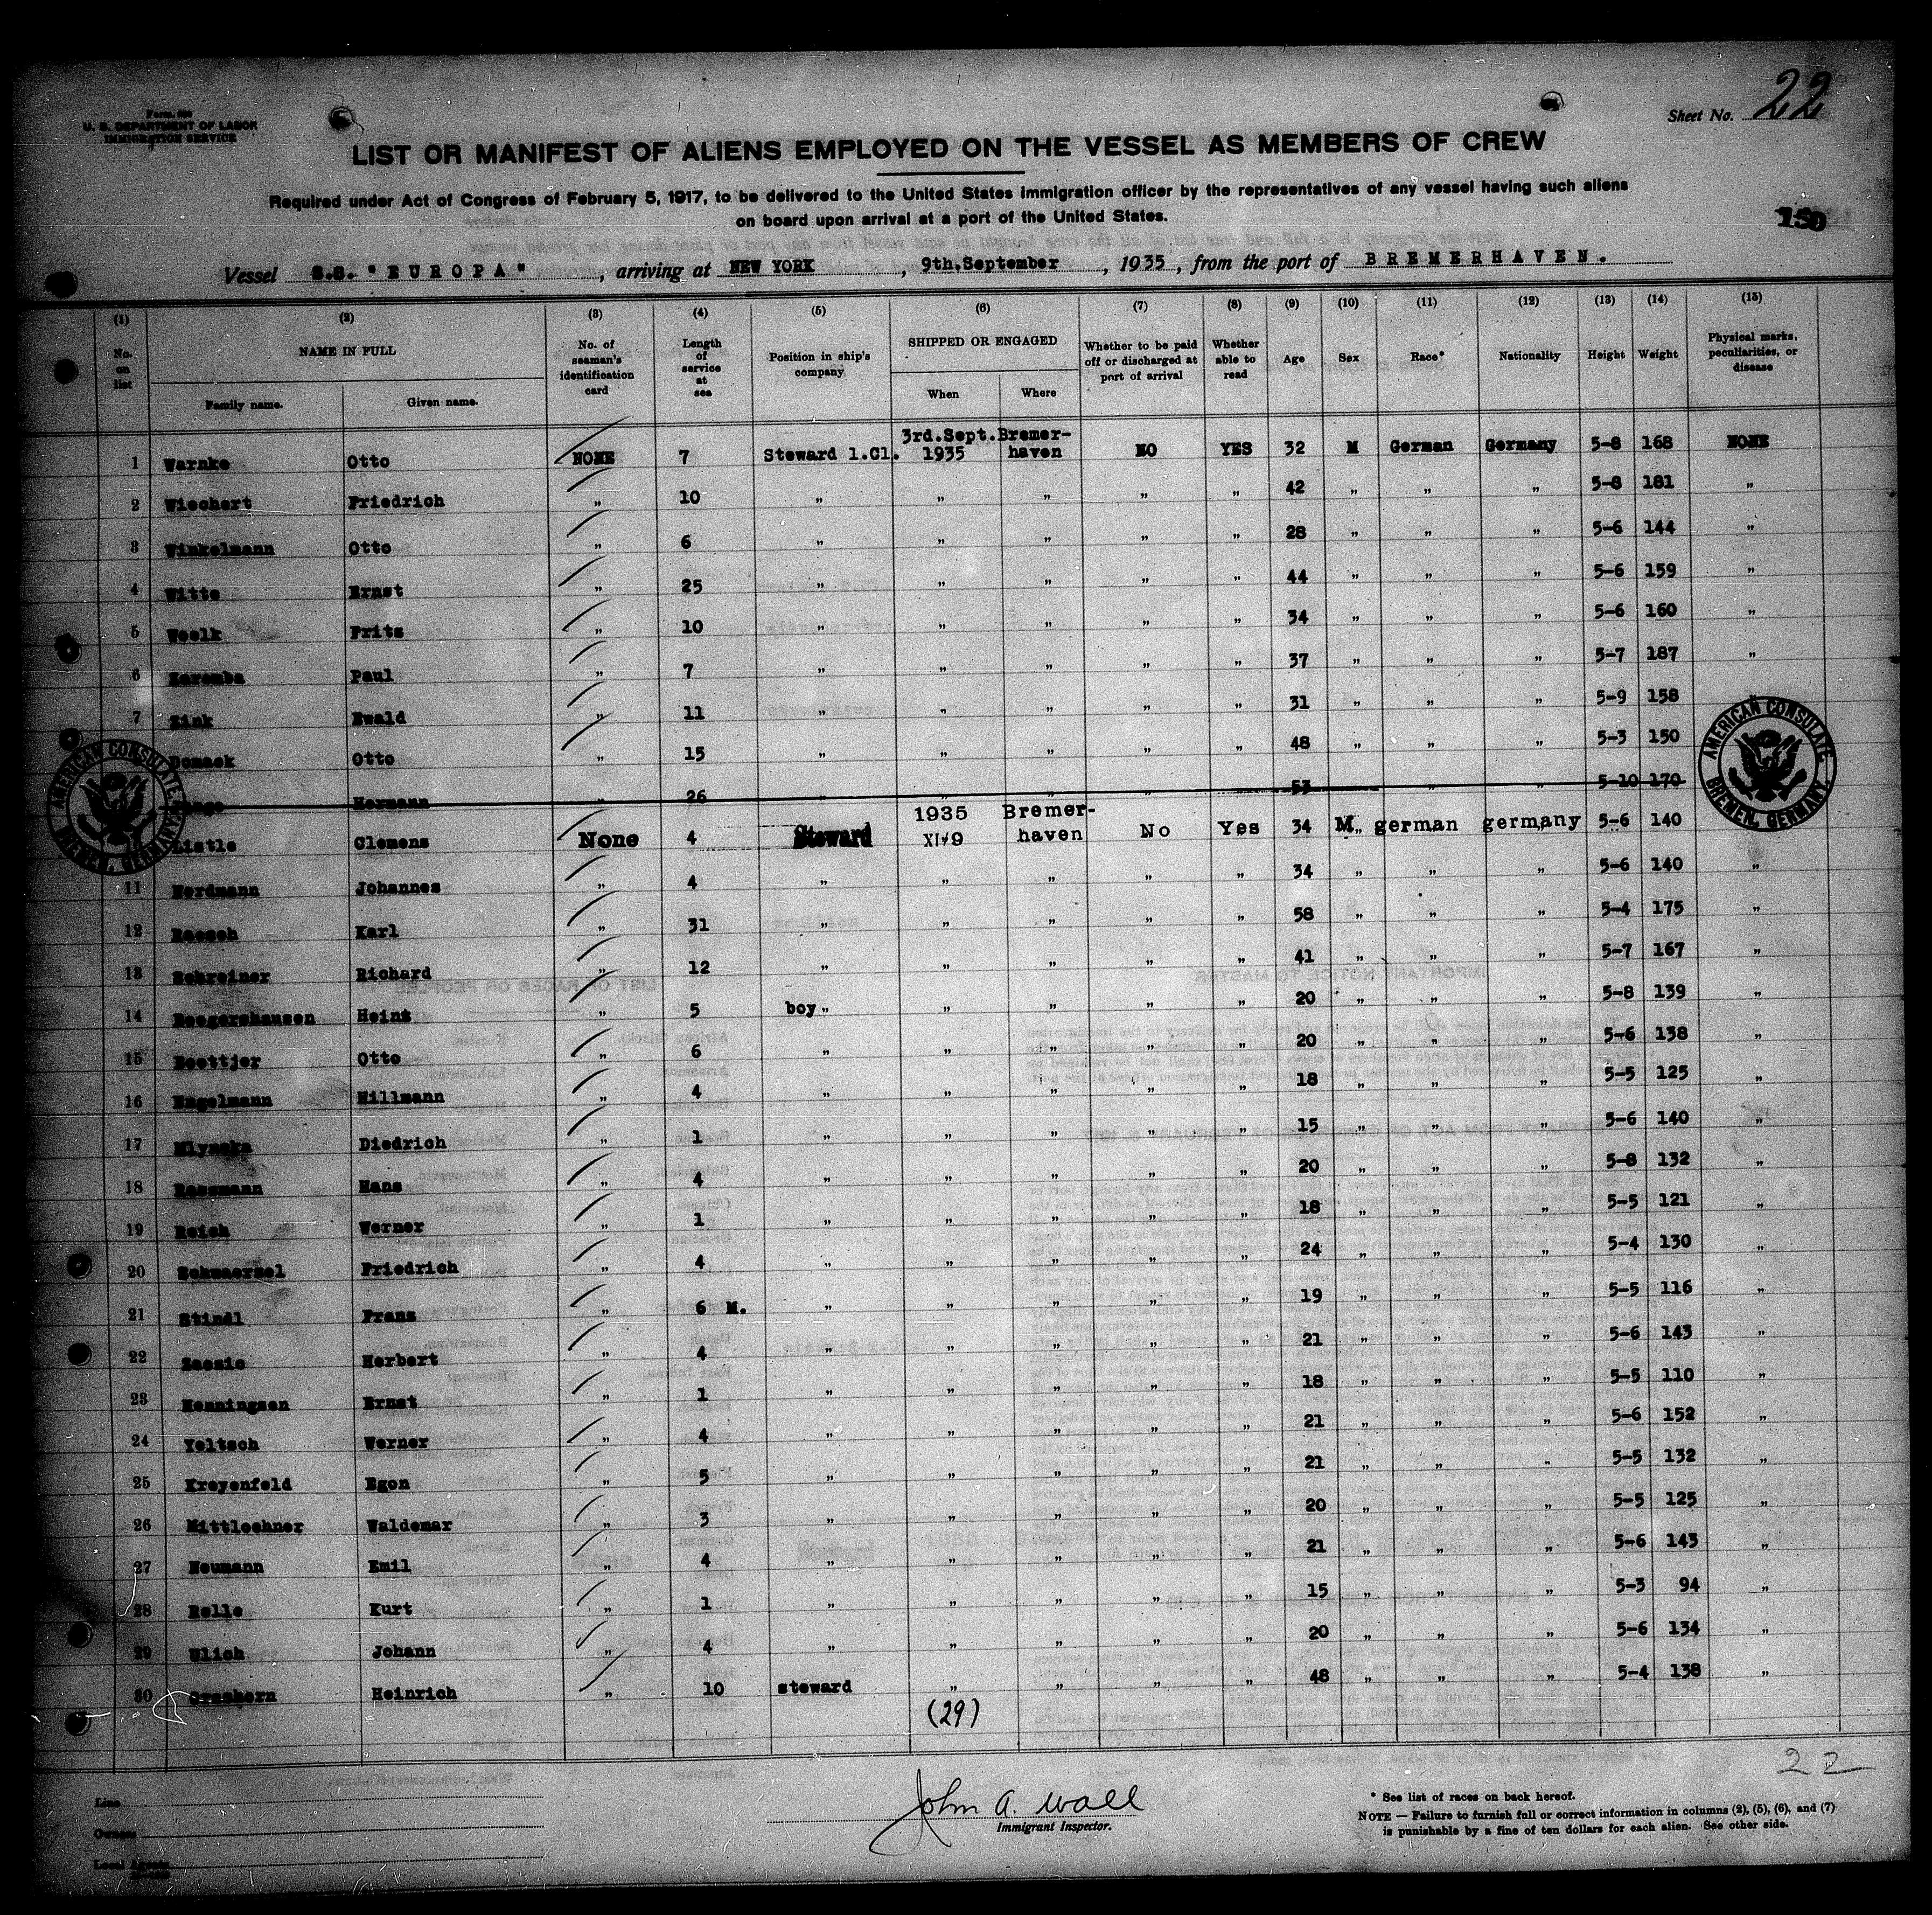 Form 680
U. S. DEPARTMENT OF LABOR
IMMIGRATION SERVICE
Sheet No. 22
LIST OR MANIFEST OF ALIENS EMPLOYED ON THE VESSEL AS MEMBERS OF CREW
Required under Act of Congress of February 5, 1917, to be delivered to the United States Immigration officer by the representatives of any vessel having such aliens
on board upon arrival at a port of the United States.
150
Vessel S.S. "EUROPA", arriving at NEW YORK, 9th.September, 1935, from the port of BREMERHAVEN.
(1) (2) (3) (4) (5) (6) (7) (8) (9) (10) (11) (12) (13) (14) (15)
No. on list NAME IN FULL Family name. Given name. No. of seaman's identification card Length of service at sea Position in ship's company SHIPPED OR ENGAGED When Where Whether to be paid off or discharged at port of arrival Whether able to read Age Sex Race* Nationality Height Weight Physical marks, peculiarities, or disease
1 Warnke Otto NONE 7 Steward 1.Cl. 3rd.Sept. 1935 Bremer-haven NO YES 32 M German Germany 5-8 168 NONE
2 Wiechert Friedrich " 10 " " " " " 42 " " " 5-8 181 "
3 Winkelmann Otto " 6 " " " " " 28 " " " 5-6 144 "
4 Witte Ernst " 25 " " " " " 44 " " " 5-6 159 "
5 Woelk Fritz " 10 " " " " " 34 " " " 5-6 160 "
6 Zaremba Paul " 7 " " " " " 37 " " " 5-7 187 "
7 Zink Ewald " 11 " " " " " 31 " " " 5-9 158
Domack Otto " 15 " " " " " 48 " " " 5-3 150
Hermann " 26 " " " " " 53 " " " 5-10 170
Clemens None 4 Steward 1935 XI/9 Bremer-haven No Yes 34 M. german germany 5-6 140
11 Nordmann Johannes " 4 " " " " " 34 " " " 5-6 140 "
12 Raesch Karl " 31 " " " " " 58 " " " 5-4 175 "
13 Schreiner Richard " 12 " " " " " 41 " " " 5-7 167 "
14 Boegershausen Heinz " 5 boy " " " " " 20 " " " 5-8 139 "
15 Boettjer Otto " 6 " " " " " 20 " " " 5-6 138 "
16 Engelmann Hillmann " 4 " " " " " 18 " " " 5-5 125 "
17 Diedrich " 1 " " " " " 15 " " " 5-6 140 "
18 Rossmann Hans " 4 " " " " " 20 " " " 5-8 132 "
19 Reich Werner " 1 " " " " " 18 " " " 5-5 121 "
20 Schwaersel Friedrich " 4 " " " " " 24 " " " 5-4 130 "
21 Stindl Franz " 6 M. " " " " " 19 " " " 5-5 116 "
22 Herbert " 4 " " " " " 21 " " " 5-6 143 "
23 Henningsen Ernst " 1 " " " " " 18 " " " 5-5 110 "
24 Veltsch Werner " 4 " " " " " 21 " " " 5-6 152 "
25 Kreyenfeld Egon " 5 " " " " " 21 " " " 5-5 132 "
26 Mittlechner Waldemar " 3 " " " " " 20 " " " 5-5 125 "
27 Neumann Emil " 4 " " " " " 21 " " " 5-6 143 "
28 Relle Kurt " 1 " " " " " 15 " " " 5-3 94 "
29 Ulich Johann " 4 " " " " " 20 " " " 5-6 134 "
30 Grashorn Heinrich " 10 steward " " " " 48 " " " 5-4 138 "
(29)
AMERICAN CONSULATE
BREMEN, GERMANY
AMERICAN CONSULATE
BREMEN, GERMANY
22
Line
Owners
Local Agents
John A. Wall
Immigrant Inspector.
* See list of races on back hereof.
NOTE — Failure to furnish full or correct information in columns (2), (5), (6), and (7)
is punishable by a fine of ten dollars for each alien. See other side.